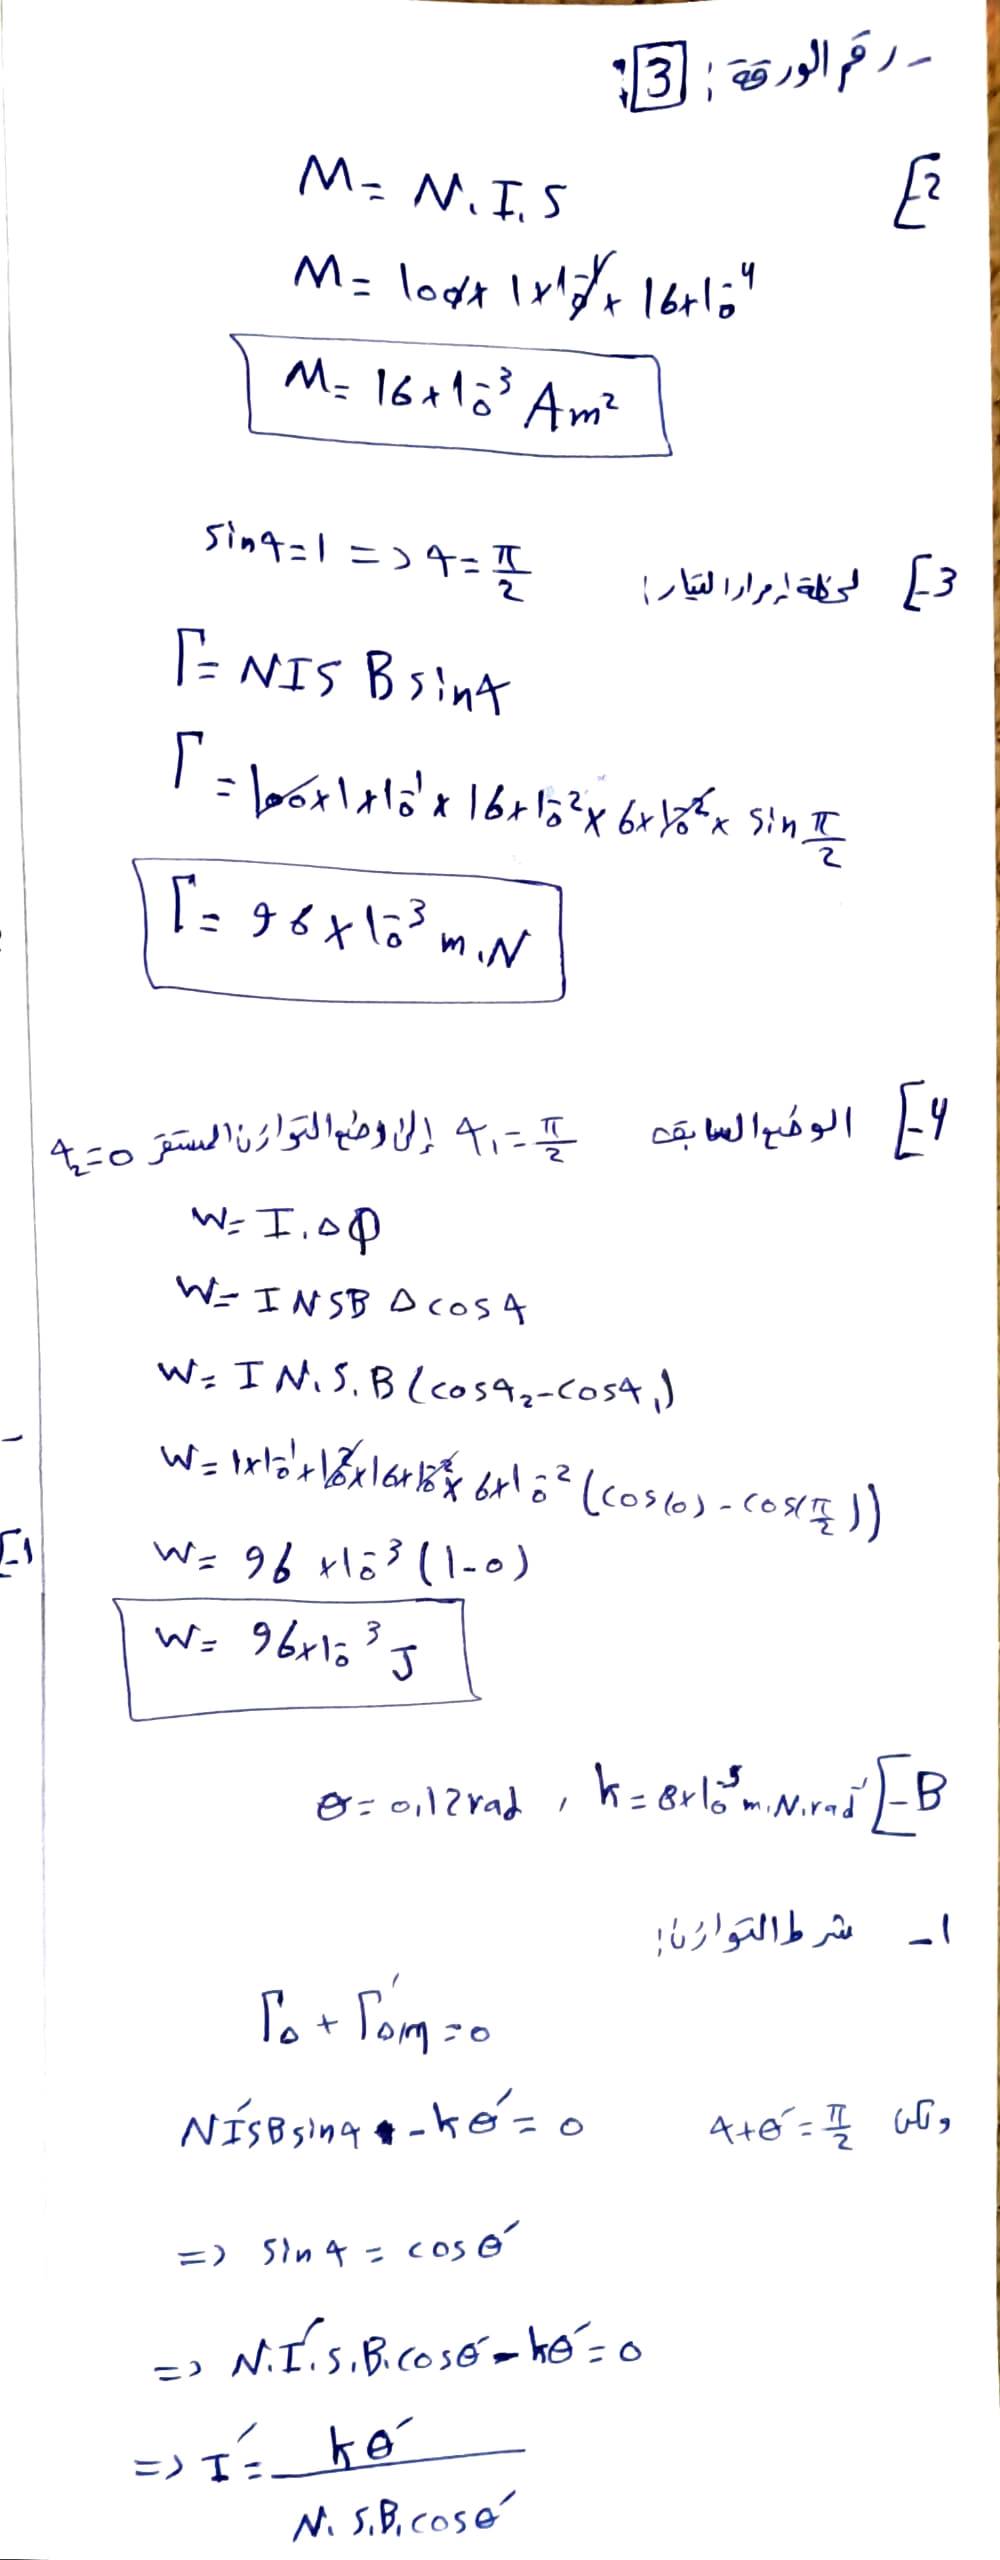 - رقم الورقة: 3:
2]
M = N.I.S
M = 100 × 1×10⁻¹ × 16×10⁻⁴
M = 16×10⁻³ Am²
3] لحظة إمرار التيار:
sin α = 1 => α = π/2
Γ = NIS B sin α
Γ = 100×1×10⁻¹ × 16×10⁻² × 6×10⁻² × sin π/2
Γ = 96×10⁻³ m.N
4] الوضع السابق α₁ = π/2 إلى وضع التوازن المستقر α₂ = 0
W = I.ΔΦ
W = INSB Δcos α
W = IN.S.B (cos α₂ - cos α₁)
W = 1×10⁻¹ × 10² × 16×10⁻² × 6×10⁻² (cos(0) - cos(π/2))
W = 96×10⁻³ (1-0)
W = 96×10⁻³ J
B] k = 8×10⁻⁵ m.N.rad⁻¹ , θ = 0,12 rad
1- شرط التوازن:
Γ_Δ + Γ'_Δ/m = 0
ولكن α+θ' = π/2
NI'SB sin α - kθ' = 0
=> sin α = cos θ'
=> N.I'.S.B.cos θ' - kθ' = 0
=> I' = kθ' / N.S.B.cos θ'
1]